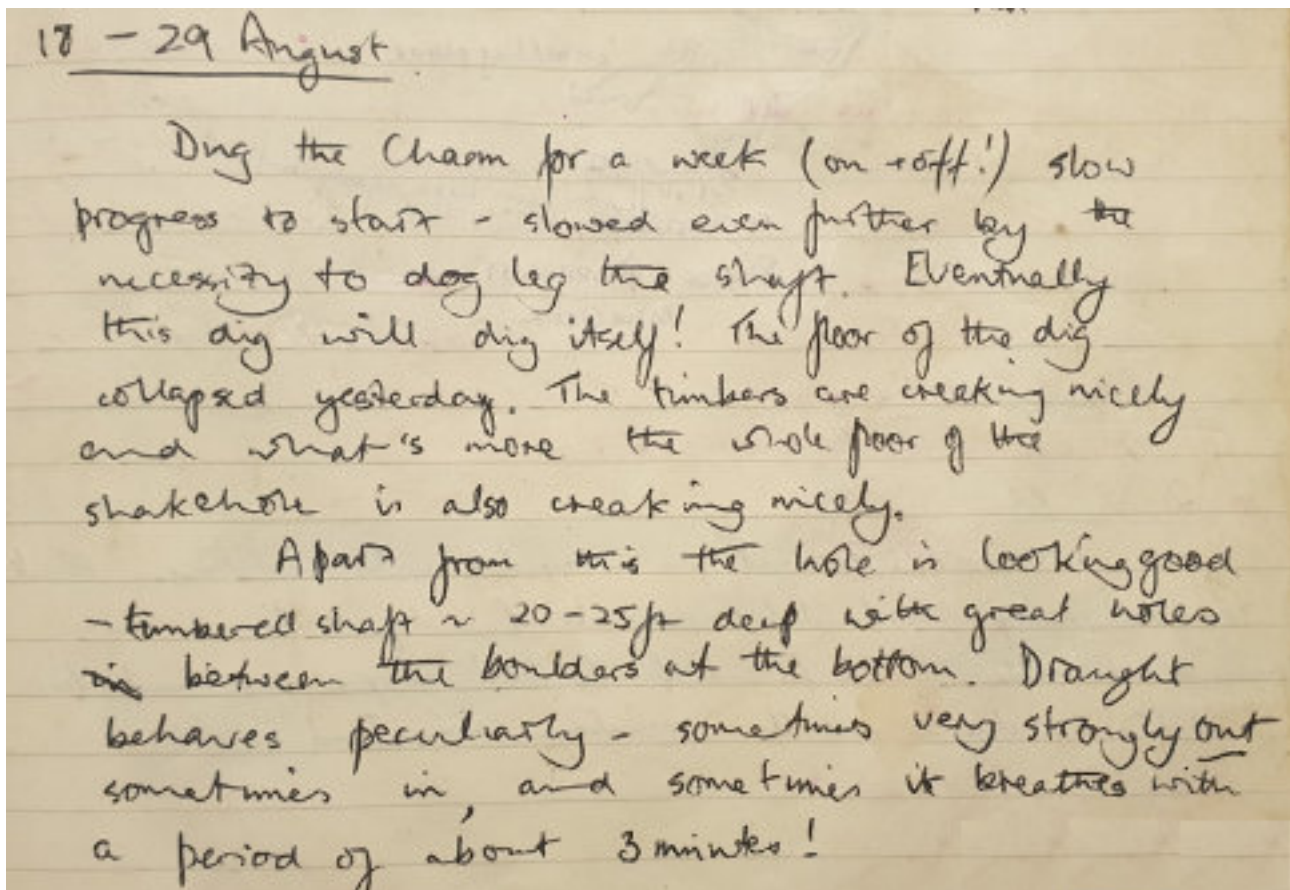 18 - 29 August
Dug the Chasm for a week (on + off!) slow
progress to start - slowed even further by the
necessity to dog leg the shaft. Eventually
this dig will dig itself! The floor of the dig
collapsed yesterday. The timbers are creaking nicely
and what's more the whole floor of the
shakehole is also creaking nicely.
Apart from this the hole is looking good
- timbered shaft ~ 20-25ft deep with great holes
between the boulders at the bottom. Draught
behaves peculiarly - sometimes very strongly out
sometimes in, and sometimes it breathes with
a period of about 3 minutes!